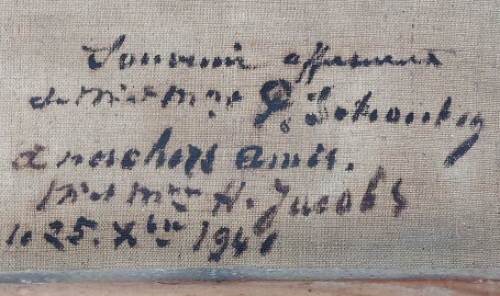 Souvenir affectueux
de Mr et Mme
à nos chers amis.
Mr et Mme H. Jacobs
le 25. Xbre